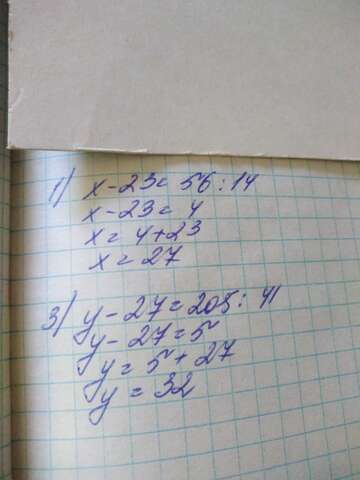 1) x - 23 = 56 : 14
x - 23 = 4
x = 4 + 23
x = 27
3) y - 27 = 205 : 41
y - 27 = 5
y = 5 + 27
y = 32